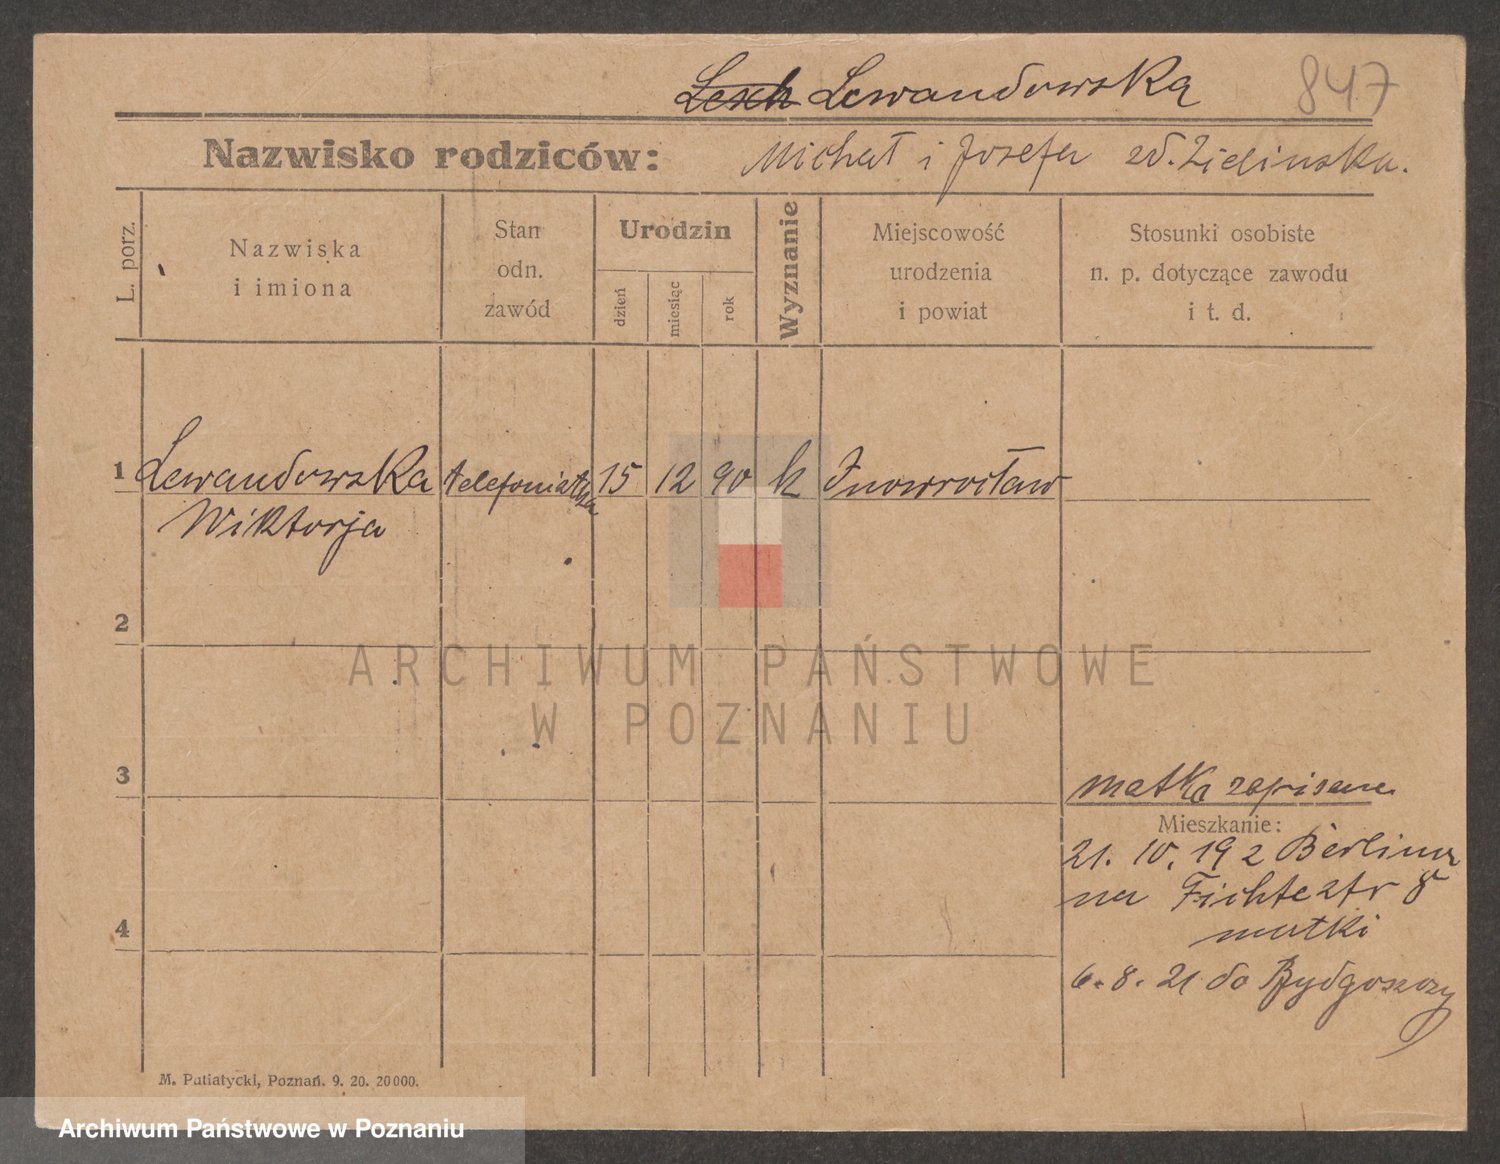 Lesch Lewandowska 847
Nazwisko rodziców: Michał i Józefa zd. Zielinska.
L. porz.
Nazwiska
i imiona
Stan
odn.
zawód
Urodzin
dzień
miesiąc
rok
Wyznanie
Miejscowość
urodzenia
i powiat
Stosunki osobiste
n. p. dotyczące zawodu
i t. d.
1 Lewandowska telefonistka 15 12 90 k Inowrocław
Wiktorja
2
ARCHIWUM PAŃSTWOWE
W POZNANIU
3
matka zapisana
Mieszkanie:
21. 10. 19 z Berlina
na Fichtestr 8
matki
4
6. 8. 21 do Bydgoszczy
M. Putiatycki, Poznań. 9. 20. 20000.
Archiwum Państwowe w Poznaniu